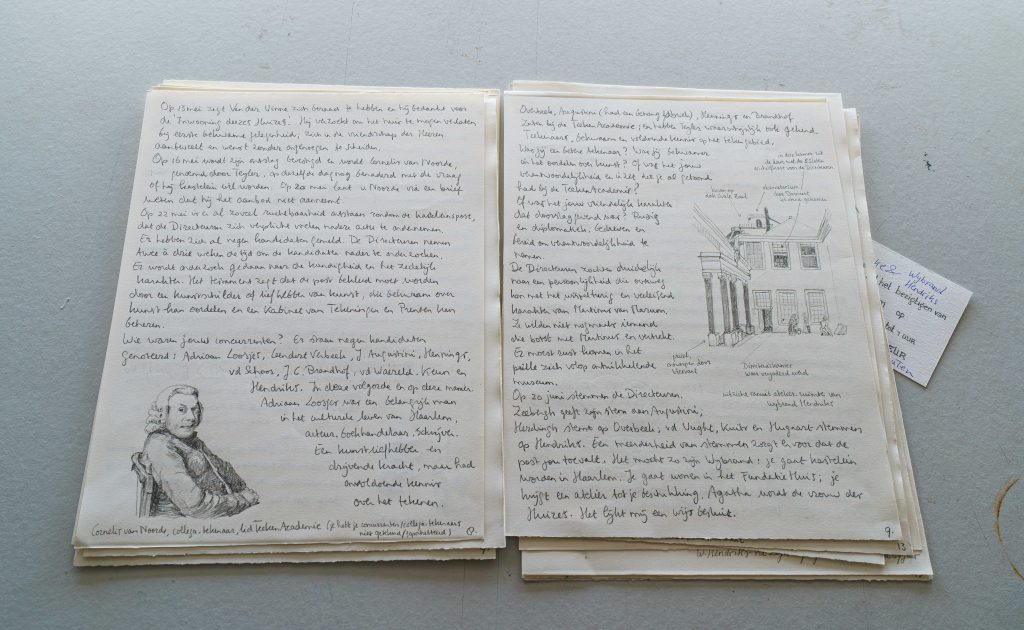 Op 13 mei zegt Van der Vinne zich beraad te hebben en hij bedankt voor
de 'Inwooning deezes Huizes.' Hij verzoekt om het huis te mogen verlaten
bij eerste bekwame gelegenheid, zich in de vriendschap der Heeren
aanbeveelt en wenst zonder ongenoegen te scheiden.
Op 16 mei wordt zijn ontslag bevestigd en wordt Cornelis van Noorde,
genoemd door Teyler, op dezelfde dag nog benaderd met de vraag
of hij kastelein wil worden. Op 20 mei laat v. Noorde via een brief
weten dat hij het aanbod niet aanneemt.
Op 22 mei is er al zoveel ruchtbaarheid ontstaan rondom de kasteleinspost,
dat de Directeuren zich verplicht voelen nadere actie te ondernemen.
Er hebben zich al negen kandidaten gemeld. De Directeuren nemen
twee à drie weken de tijd om de kandidaten nader te onderzoeken.
Er wordt onderzoek gedaan naar de kundigheid en het zedelijk
karakter. Het testament zegt dat de post bekleed moet worden
door een kunstschilder of liefhebber van kunst, die bekwaam over
kunst kan oordelen en een Kabinet van Tekeningen en Prenten kan
beheren.
Wie waren jouw concurrenten? Er staan negen kandidaten
genoteerd: Adriaan Loosjes, Leendert Overbeek, J. Augustini, Hennings,
vd Schoor, J.C. Brandhof, vd Waereld, Keun en
Hendriks. In deze volgorde en op deze manier.
Adriaan Loosjes was een belangrijk man
in het culturele leven van Haarlem,
auteur, boekhandelaar, schrijver.
Een kunstliefhebber en
drijvende kracht, maar had
onvoldoende kennis
over het tekenen.
Cornelis van Noorde, collega-tekenaar, lid TeekenAcademie (je hebt je concurrenten/collega-tekenaars
niet getekend/geportretteerd)
Overbeek, Augustini (had een Gerning Gabriels), Hennings en Brandhof
zaten bij de TeekenAcademie; en hebben Teyler waarschijnlijk ook gekend.
Teekenaars, bekwaam en voldoende kennis op het tekengebied.
Was jij een betere tekenaar? Was jij bekwamer
in het oordelen over kunst? Of was het jouw
verantwoordelijkheid en inzet die je al getoond
had bij de TeekenAcademie?
Of was het jouw vriendelijk karakter
dat doorslaggevend was? Rustig
en diplomatiek, bedreven en
bereid om verantwoordelijkheid te
nemen.
De Directeuren zochten duidelijk
naar een persoonlijkheid die overweg
kon met het wispelturig en veeleisend
karakter van Martinus van Marum.
Ze wilden niet nogmaals iemand
die botst met Martinus en vertrekt.
Er moest rust komen in het
prille zich volop ontwikkelende
museum.
observatorium
Directeurkamer
waar vergaderd werd
uitzicht vanuit atelier-ruimte van
Wybrand Hendriks
Op 20 juni stemmen de Directeuren.
Zeebergh geeft zijn stem aan Augustini;
Herdingh stemt op Overbeek; vd Vught, Kuits en Hugaart stemmen
op Hendriks. Een meerderheid van stemmen zorgt ervoor dat de
post jou toevalt. Het mocht zo zijn Wybrand: je gaat kastelein
worden in Haarlem. Je gaat wonen in het FundatieHuis; je
krijgt een atelier tot je beschikking. Agatha wordt de vrouw der
Huizes. Het lijkt mij een wijs besluit.
9.
13
Wybrand
Hendriks
het bezigtigen van
op
UUR